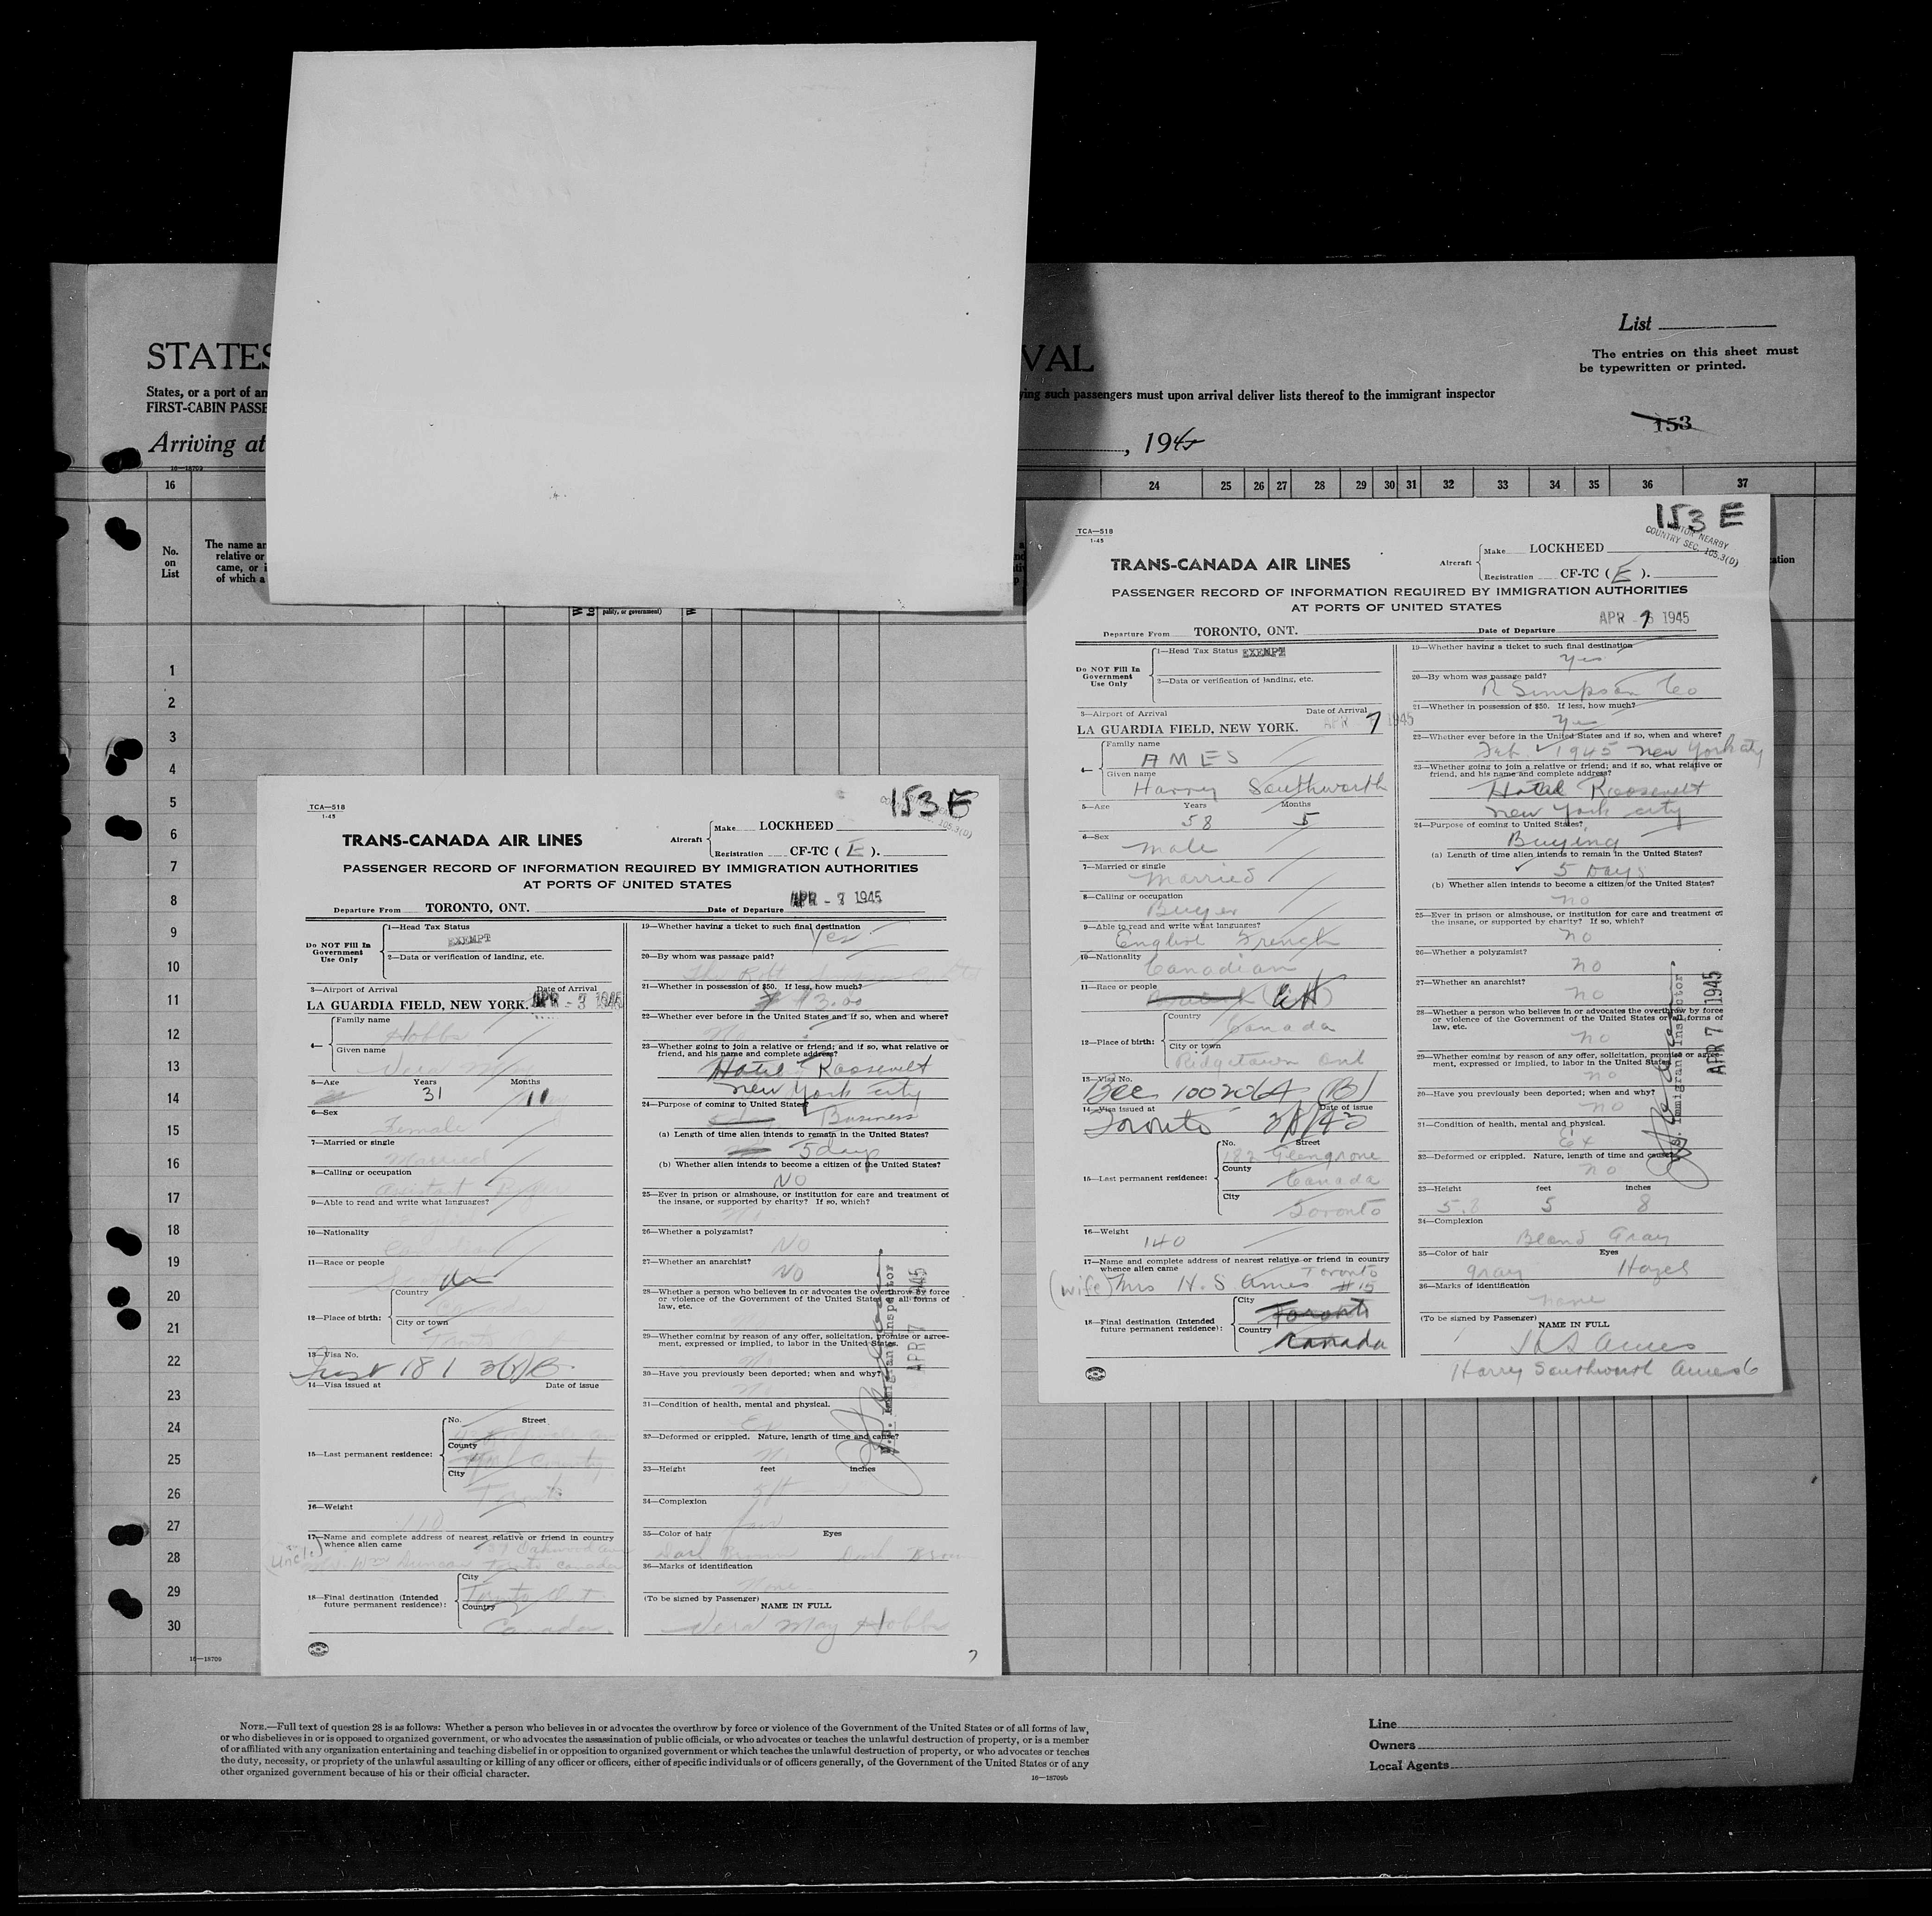 List
STATES
VAL
The entries on this sheet must
be typewritten or printed.
States, or a port of an
ying such passengers must upon arrival deliver lists thereof to the immigrant inspector
FIRST-CABIN PASSE
153
Arriving at
, 1945
16—18709
16 24 25 26 27 28 29 30 31 32 33 34 35 36 37
No.
on
List
The name an
relative or
came, or i
of which a
pality, or government)
1
2
3
4
5
6
7
8
9
10
11
12
13
14
15
16
17
18
19
20
21
22
23
24
25
26
27
28
29
30
16—18709
TCA—518
1-45
153 E
COUNTRY SEC. 105.3(D)
TRANS-CANADA AIR LINES
Aircraft
Make LOCKHEED
Registration CF-TC ( E ).
PASSENGER RECORD OF INFORMATION REQUIRED BY IMMIGRATION AUTHORITIES
AT PORTS OF UNITED STATES
Departure From TORONTO, ONT.
Date of Departure APR - 7 1945
Do NOT Fill In
Government
Use Only
1—Head Tax Status EXEMPT
2—Data or verification of landing, etc.
3—Airport of Arrival
Date of Arrival
LA GUARDIA FIELD, NEW YORK. APR - 3 1945
4—
Family name
Hobbs
Given name
Vera May
5—Age Years Months
31 11
6—Sex
Female
7—Married or single
Married
8—Calling or occupation
9—Able to read and write what languages?
English
10—Nationality
Canadian
11—Race or people
12—Place of birth:
Country
Canada
City or town
13—Visa No.
14—Visa issued at Date of issue
15—Last permanent residence:
No. Street
County
York County
City
Toronto
16—Weight
110
17—Name and complete address of nearest relative or friend in country
whence alien came
Oakwood Ave
(Uncle) Mr. Wm Duncan Toronto Canada
18—Final destination (Intended
future permanent residence):
City
Toronto
Country
Canada
19—Whether having a ticket to such final destination
Yes
20—By whom was passage paid?
The Robt Simpson Co
21—Whether in possession of $50. If less, how much?
22—Whether ever before in the United States and if so, when and where?
23—Whether going to join a relative or friend; and if so, what relative or
friend, and his name and complete address?
Hotel Roosevelt
New York City
24—Purpose of coming to United States?
Business
(a) Length of time alien intends to remain in the United States?
5 days
(b) Whether alien intends to become a citizen of the United States?
NO
25—Ever in prison or almshouse, or institution for care and treatment of
the insane, or supported by charity? If so, which?
26—Whether a polygamist?
NO
27—Whether an anarchist?
NO
28—Whether a person who believes in or advocates the overthrow by force
or violence of the Government of the United States or all forms of
law, etc.
29—Whether coming by reason of any offer, solicitation, promise or agree-
ment, expressed or implied, to labor in the United States.
30—Have you previously been deported; when and why?
31—Condition of health, mental and physical.
Ex
32—Deformed or crippled. Nature, length of time and cause?
33—Height feet inches
5 ft
34—Complexion
fair
35—Color of hair Eyes
Dark Brown Dark Brown
36—Marks of identification
None
(To be signed by Passenger)
NAME IN FULL
Vera May Hobbs
7
U.S. Immigrant Inspector
APR 7 1945
TCA—518
1-45
153 E
COUNTRY SEC. 105.3(D)
TRANS-CANADA AIR LINES
Aircraft
Make LOCKHEED
Registration CF-TC ( E ).
PASSENGER RECORD OF INFORMATION REQUIRED BY IMMIGRATION AUTHORITIES
AT PORTS OF UNITED STATES
Departure From TORONTO, ONT.
Date of Departure APR - 7 1945
Do NOT Fill In
Government
Use Only
1—Head Tax Status EXEMPT
2—Data or verification of landing, etc.
3—Airport of Arrival
Date of Arrival
LA GUARDIA FIELD, NEW YORK. APR 7 1945
4—
Family name
AMES
Given name
Harry Southworth
5—Age Years Months
58 5
6—Sex
Male
7—Married or single
Married
8—Calling or occupation
Buyer
9—Able to read and write what languages?
English French
10—Nationality
Canadian
11—Race or people
12—Place of birth:
Country
Canada
City or town
Ridgetown Ont
13—Visa No.
Bcc 100206A (B)
14—Visa issued at Date of issue
Toronto
15—Last permanent residence:
No. Street
182 Glengrove
County
Canada
City
Toronto
16—Weight
140
17—Name and complete address of nearest relative or friend in country
whence alien came
Toronto
(wife) Mrs H. S Ames #15
18—Final destination (Intended
future permanent residence):
City
Toronto
Country
Canada
19—Whether having a ticket to such final destination
Yes
20—By whom was passage paid?
R Simpson Co
21—Whether in possession of $50. If less, how much?
Yes
22—Whether ever before in the United States and if so, when and where?
Feb 1945 New York City
23—Whether going to join a relative or friend; and if so, what relative or
friend, and his name and complete address?
Hotel Roosevelt
New York City
24—Purpose of coming to United States?
Buying
(a) Length of time alien intends to remain in the United States?
5 Days
(b) Whether alien intends to become a citizen of the United States?
no
25—Ever in prison or almshouse, or institution for care and treatment of
the insane, or supported by charity? If so, which?
no
26—Whether a polygamist?
no
27—Whether an anarchist?
no
28—Whether a person who believes in or advocates the overthrow by force
or violence of the Government of the United States or all forms of
law, etc.
no
29—Whether coming by reason of any offer, solicitation, promise or agree-
ment, expressed or implied, to labor in the United States.
no
30—Have you previously been deported; when and why?
no
31—Condition of health, mental and physical.
Ex
32—Deformed or crippled. Nature, length of time and cause?
no
33—Height feet inches
5.8 5 8
34—Complexion
Blond Gray
35—Color of hair Eyes
gray Hazel
36—Marks of identification
none
(To be signed by Passenger)
NAME IN FULL
H S Ames
Harry Southworth Ames 6
U.S. Immigrant Inspector
APR 7 1945
NOTE.—Full text of question 28 is as follows: Whether a person who believes in or advocates the overthrow by force or violence of the Government of the United States or of all forms of law,
or who disbelieves in or is opposed to organized government, or who advocates the assassination of public officials, or who advocates or teaches the unlawful destruction of property, or is a member
of or affiliated with any organization entertaining and teaching disbelief in or opposition to organized government or which teaches the unlawful destruction of property, or who advocates or teaches
the duty, necessity, or propriety of the unlawful assaulting or killing of any officer or officers, either of specific individuals or of officers generally, of the Government of the United States or of any
other organized government because of his or their official character.
16—18709b
Line
Owners
Local Agents